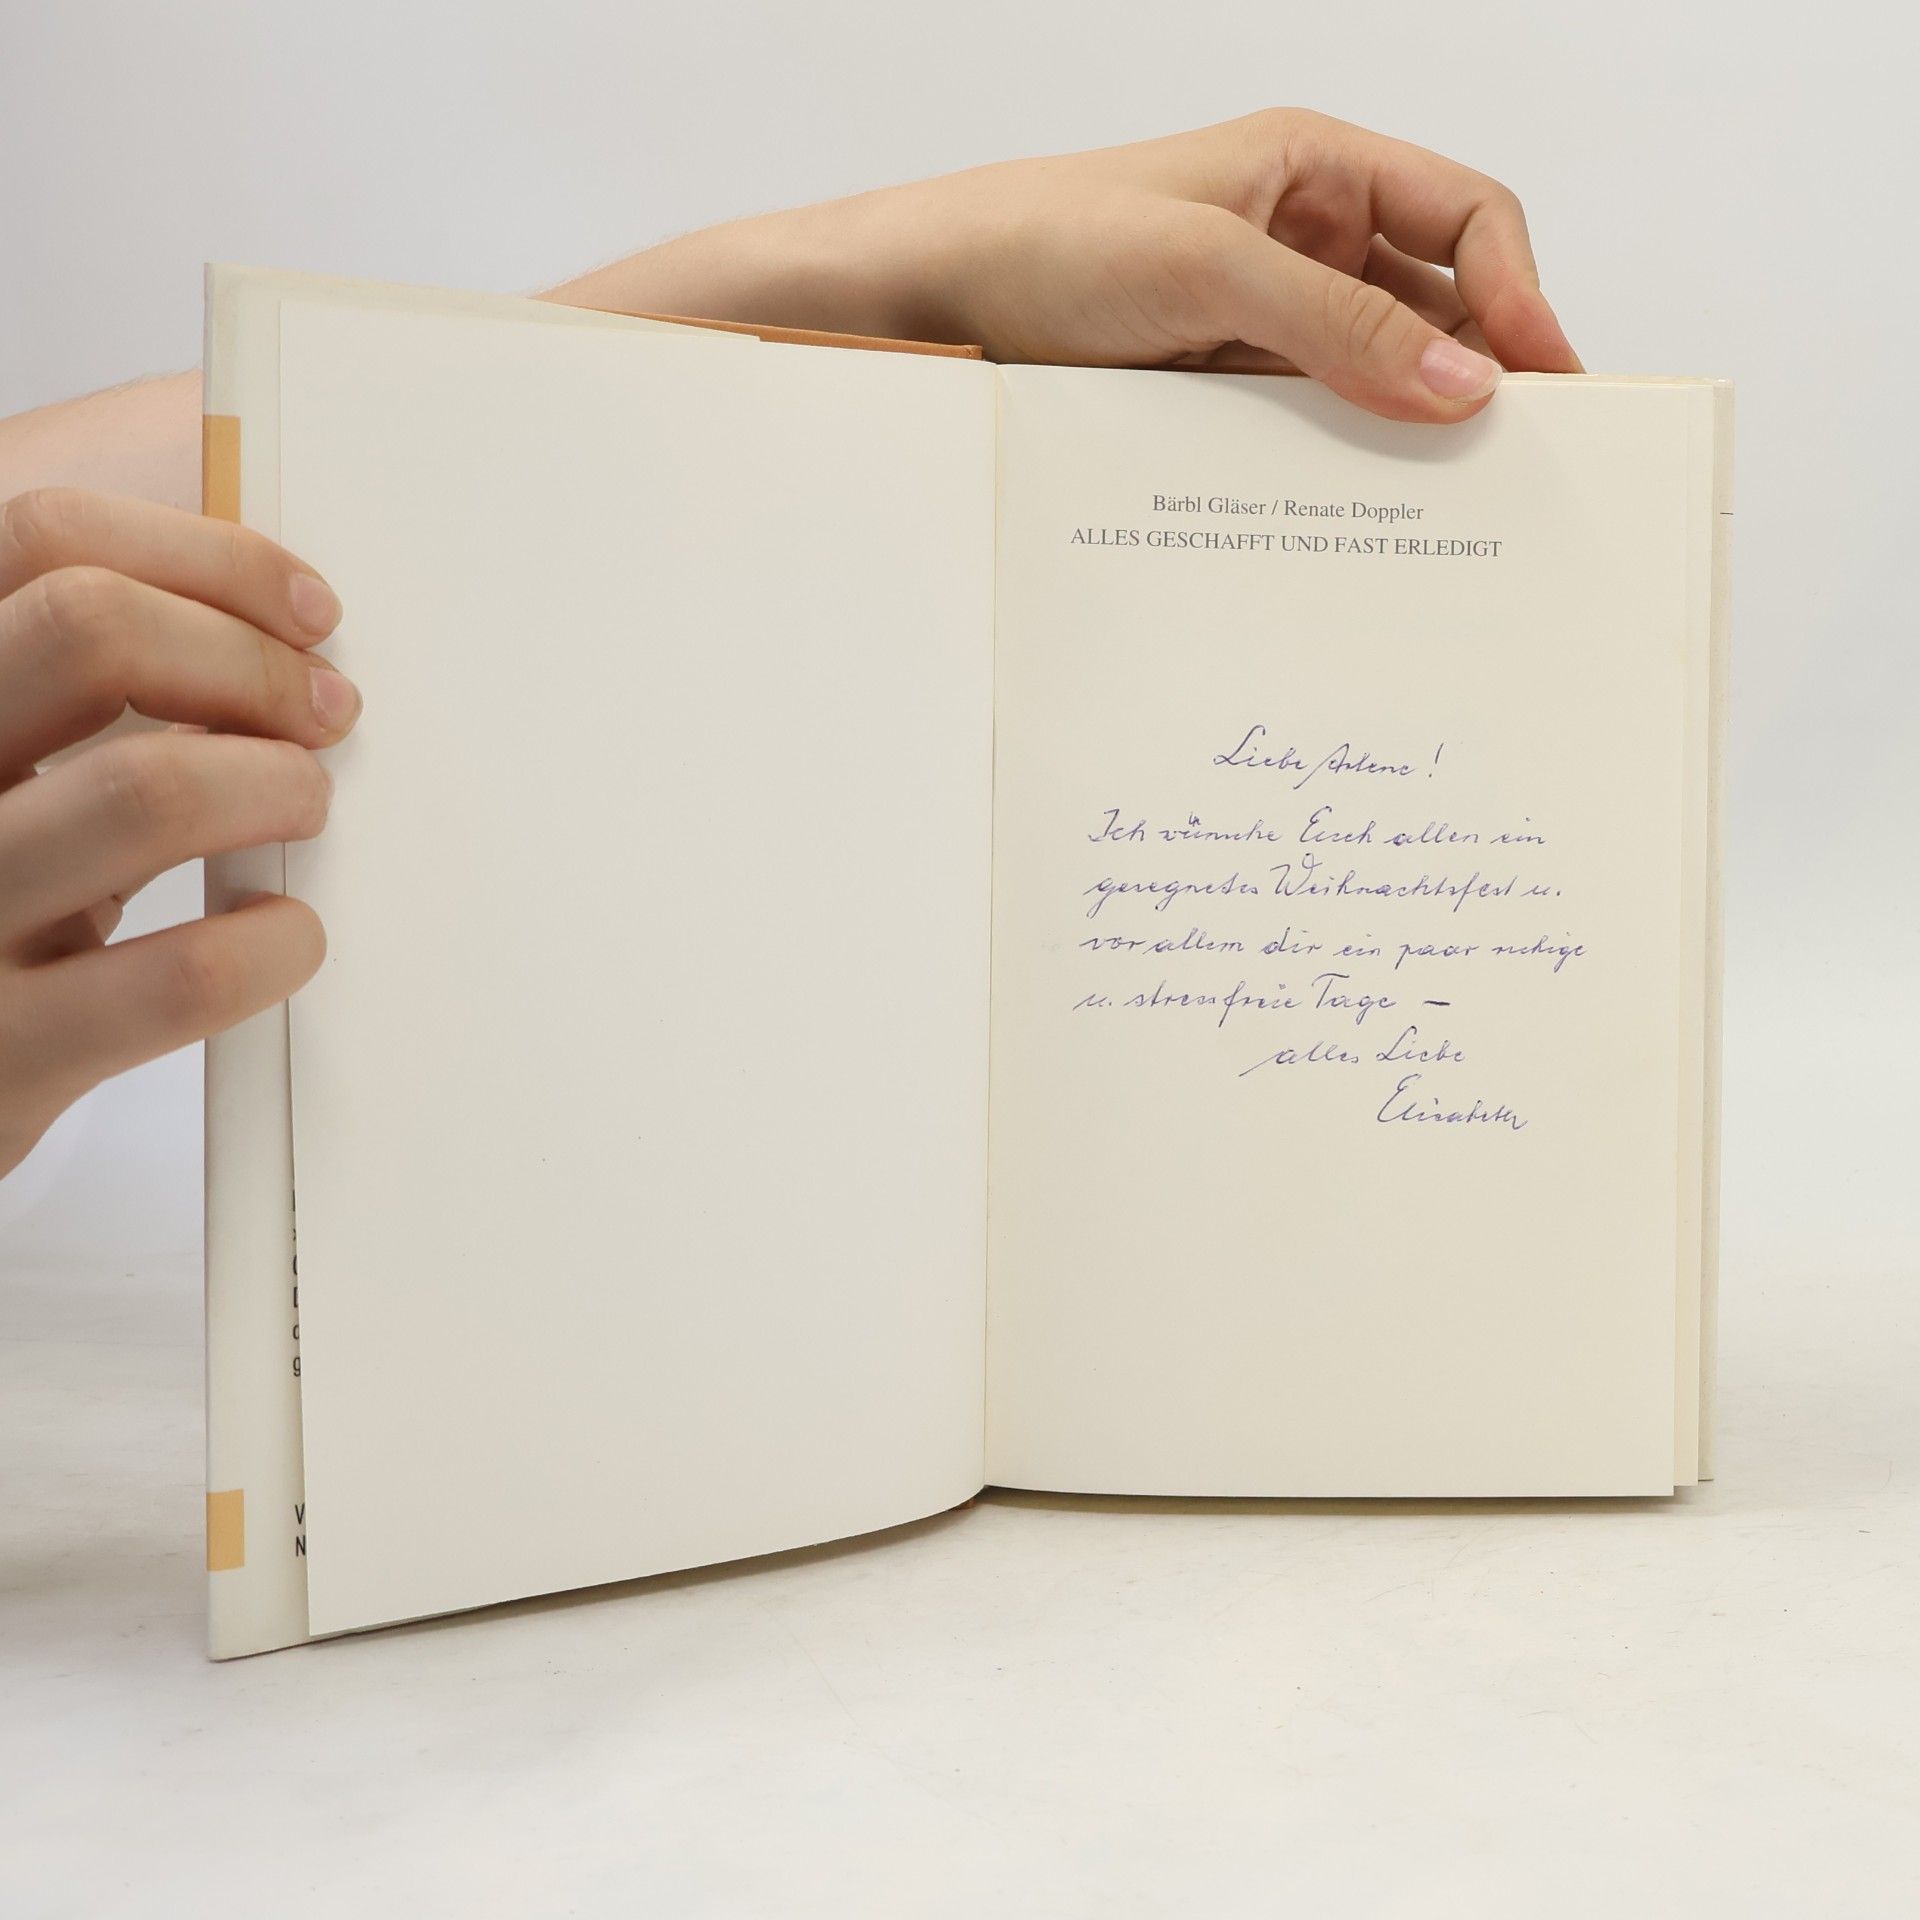 Bärbl Gläser / Renate Doppler
ALLES GESCHAFFT UND FAST ERLEDIGT
Liebe Arlene!
Ich wünsche Euch allen ein
gesegnetes Weihnachtsfest u.
vor allem dir ein paar ruhige
u. stressfreie Tage –
alles Liebe
Elisabeth